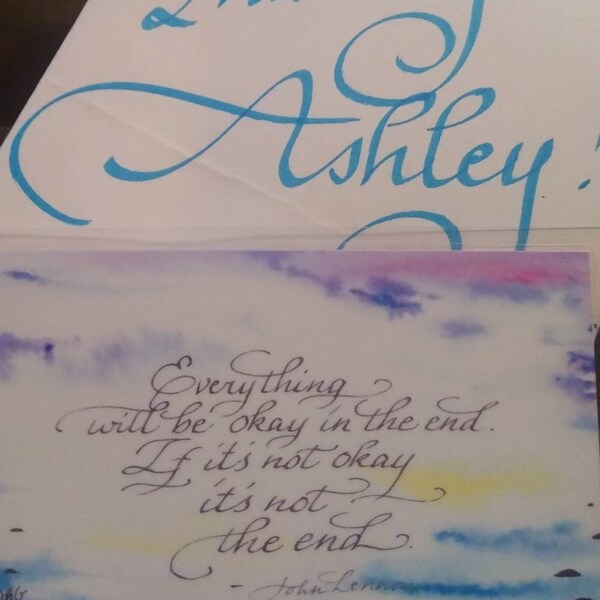 Ashley!
Everything
will be okay in the end.
If it's not okay
it's not
the end.
- John Lennon